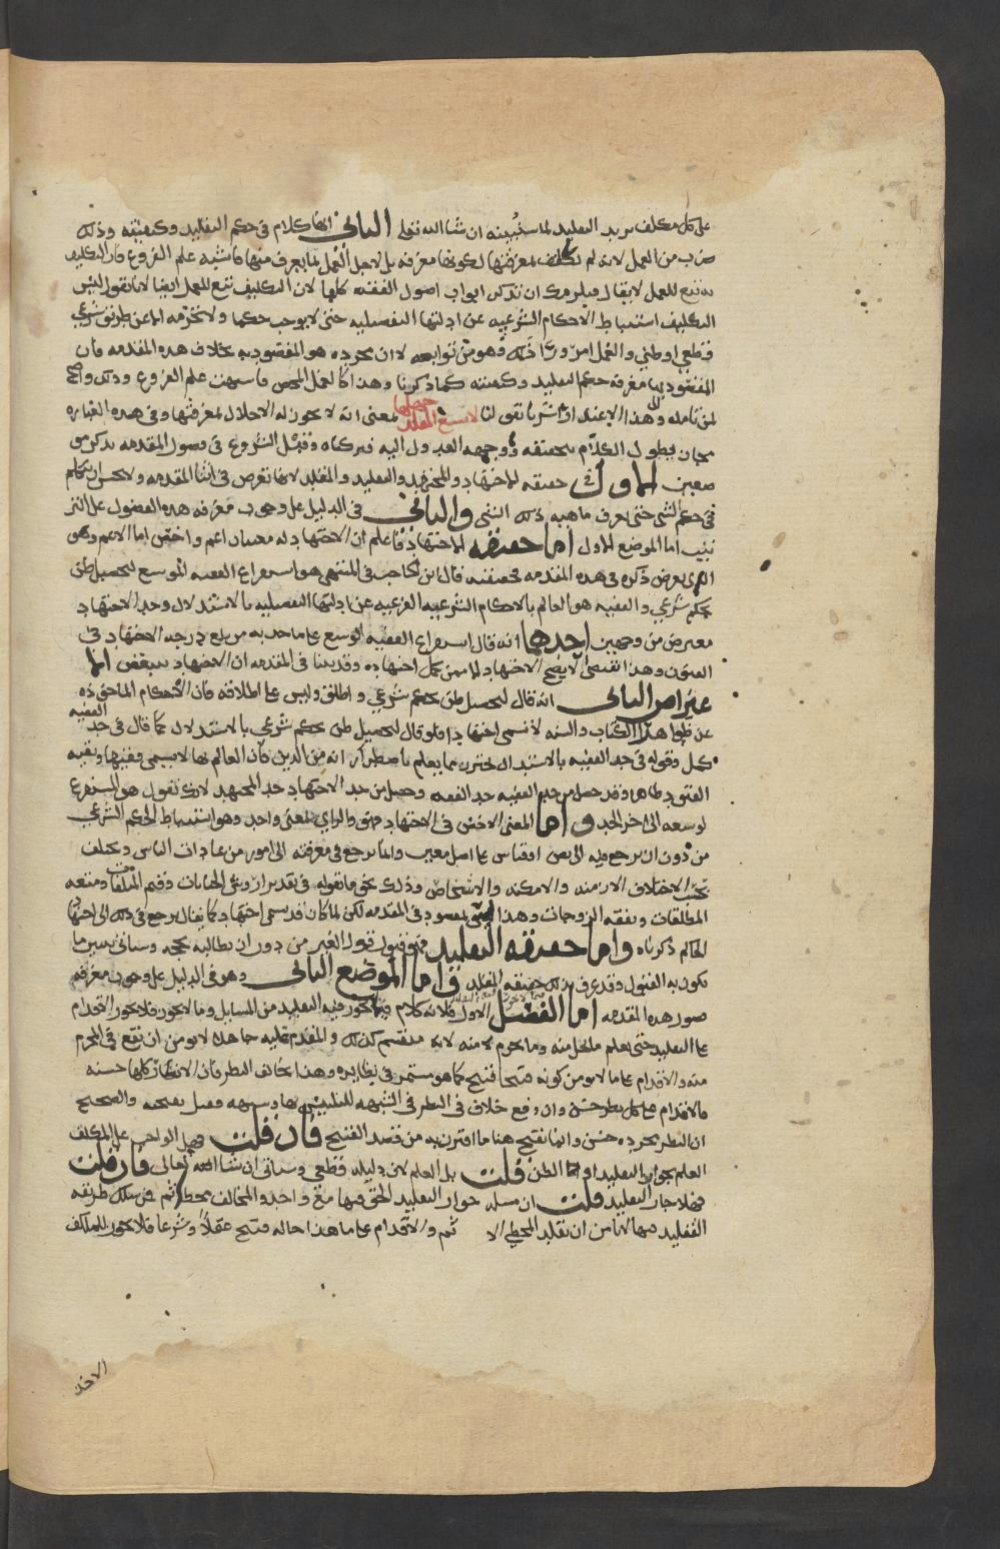 على كل مكلف يريد التقليد لما سنبينه ان شا الله تعلى الثاني انها كلام في حكم التقليد وكيفيته وذلك
ضرب من العمل لانه لم نكلف بمعرفتها لكونها معرفه بل لاجل العمل بما يعرف منها فاشبه علم الفروع فان التكليف
به تبع للعمل لا يقال فيلزمك ان تذكر ابواب اصول الفقه كلها لان التكليف تبع للعمل ايضا لانا نقول ليس
التكليف استنباط الاحكام الشرعيه عن ادلتها التفصيليه حتى لا يوجب حكما ولا نحرمه الا عن طريق شرعي
قطعي او ظني والعمل امر ورا ذلك وهو من توابعه لا ان مجرده هو المقصود به بخلاف هذه المقدمه فان
المقصود بها معرفه حكم التقليد وكيفيته كما ذكرنا وهذا كالعمل المحض فاشبهت علم الفروع وذلك واضح
لمن تامله والى هذا الاعتذار اشرنا بقولنا لا يسع المقلد جهلها بمعنى انه لا يجوز له الاخلال بمعرفتها وفي هذه العباره
مجاز يطول الكلام بتحقيقه ووجهه العدول اليه فتركناه وقبل الشروع في فصول المقدمه نذكر مو
ضعين الاول في حقيقه الاجتهاد والمجتهد والتقليد والمقلد لانها تعرض في اثنا المقدمه ولا يحسن ان يتكلم
في حكم الشي حتى يعرف ماهيه ذلك الشي والثاني في الدليل على وجوب معرفه هذه الفصول على التر
تيب اما الموضع الاول اما حقيقه الاجتهاد فاعلم ان الاجتهاد له معنيان اعم واخص اما الاعم وهو
الذي يعرض ذكره في هذه المقدمه فحقيقته قال ابن الحاجب في المنتهى هو استفراغ الفقيه الوسع لتحصيل ظن
بحكم شرعي والفقيه هو العالم بالاحكام الشرعيه الفرعيه عن ادلتها التفصيليه بالاستدلال وحد الاجتهاد
معترض من وجهين احدهما انه قال استفراغ الفقيه الوسع على ما حد به من بلغ درجه الاجتهاد في
الفنون وهذا يقتضي ان لا يصح الاجتهاد الا ممن كمل اجتهاده وقد بينا في المقدمه ان الاجتهاد يتبعض الا
عتراض الثاني انه قال لتحصيل ظن بحكم شرعي واطلق وليس على اطلاقه فان الاحكام الماخوذه
عن ظواهر الكتاب والسنه لا تسمى اجتهادا فلو قال لتحصيل ظن بحكم شرعي بالاستدلال كما قال في حد الفقيه
كمل وقوله في حد الفقيه بالاستدلال احترز مما يعلم باضطرار انه من الدين فان العالم بها لا يسمى فقيها وبقيه
القيود ظاهره وقد حصل من حد الفقيه حد الفقه وحصل من حد الاجتهاد حد المجتهد لانك تقول هو المستفرغ
لوسعه الى اخر الحد واما المعنى الاخص في الاجتهاد فهو والراي بمعنى واحد وهو استنباط الحكم الشرعي
من دون ان يرجع فيه الى نص او قياس على اصل معين وانما يرجع في معرفته الى امور من عادات الناس ويختلف
بحسب اختلاف الازمنه والامكنه والاشخاص وذلك نحو ما نقوله في تقدير اروش الجنايات وقيم المتلفات ومتعه
المطلقات ونفقه الزوجات وهذا ليس بمقصود في المقدمه لكن لما كان قد يسمى اجتهادا كما يقال يرجع في ذلك الى اجتهاد
الحاكم ذكرناه واما حقيقه التقليد فهو قبول قول الغير من دون ان يطالبه بحجه وسياتي تبيين ما
يكون به القبول وقد عرف بذلك حقيقه المقلد واما الموضع الثاني وهو في الدليل على وجوب معرفه
صور هذه المقدمه اما الفصل الاول فلانه كلام فيما يجوز فيه التقليد من المسايل وما لا يجوز فلا يجوز الاقدام
على التقليد حتى يعلم ما يحل منه وما يحرم لانه منقسم كذلك والمقدم عليه جاهلا لا يومن ان يقع في المحرم
منه والاقدام على ما لا يومن من كونه قبيحا قبيح كما هو مستمر في نظايره وهذا بخلاف النظر فان الانظار كلها حسنه
فالاقدام على كل نظر حسن وان وقع خلاف في النظر في الشبهه فقيل بقبحه والصحيح
ان النظر بمجرده حسن وانما يقبح هنا ما اقترن به من قصد القبيح فان قلت فهل الواجب على المكلف
العلم بجواز التقليد او انما الظن قلت بل العلم لان دليله قطعي وسياتي ان شا الله تعالى فان قلت
فهلا جاز التقليد قلت ان مسله جواز التقليد الحق فيها مع واحد والمخالف مخطي اثم فمن سلك طريقه
التقليد فيها لا يامن ان يقلد المخطي الا ثم والاقدام على ما هذا حاله قبيح عقلا وشرعا فلا يجوز للمكلف
الاخذ